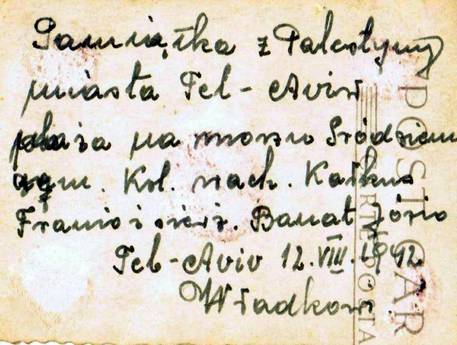 Pamiątka z Palestyny
miasta Tel-Aviv
plaża na morzu Śródziem
nym. Kol. rach. Kałkus
Franio i sierż. Banat Józio
Tel-Aviv 12.VIII.1942
Władkowi
POST CAR
CARTE POSTA